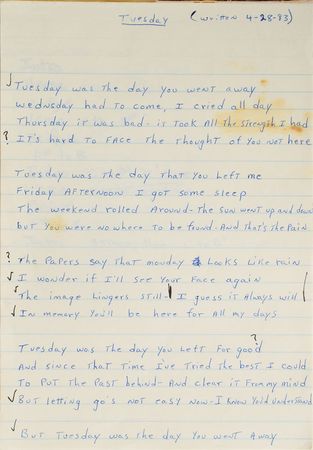 Tuesday (written 4-28-83)
✓ Tuesday was the day you went away
Wednsday had to come, I cried all day
Thursday it was bad - it took all the strength I had
? It's hard to face the thought of you not here
Tuesday was the day that you left me
Friday afternoon I got some sleep
The weekend rolled around - the sun went up and down
but you were nowhere to be found - and that's the pain
? The papers say that monday looks like rain
✓ I wonder if I'll see your face again
✓ The image lingers still - I guess it always will
✓ In memory you'll be here for all my days
?
Tuesday was the day you left for good
And since that time I've tried the best I could
To put the past behind - and clear it from my mind
✓ But letting go's not easy now - I know you'd understand
✓ But Tuesday was the day you went away